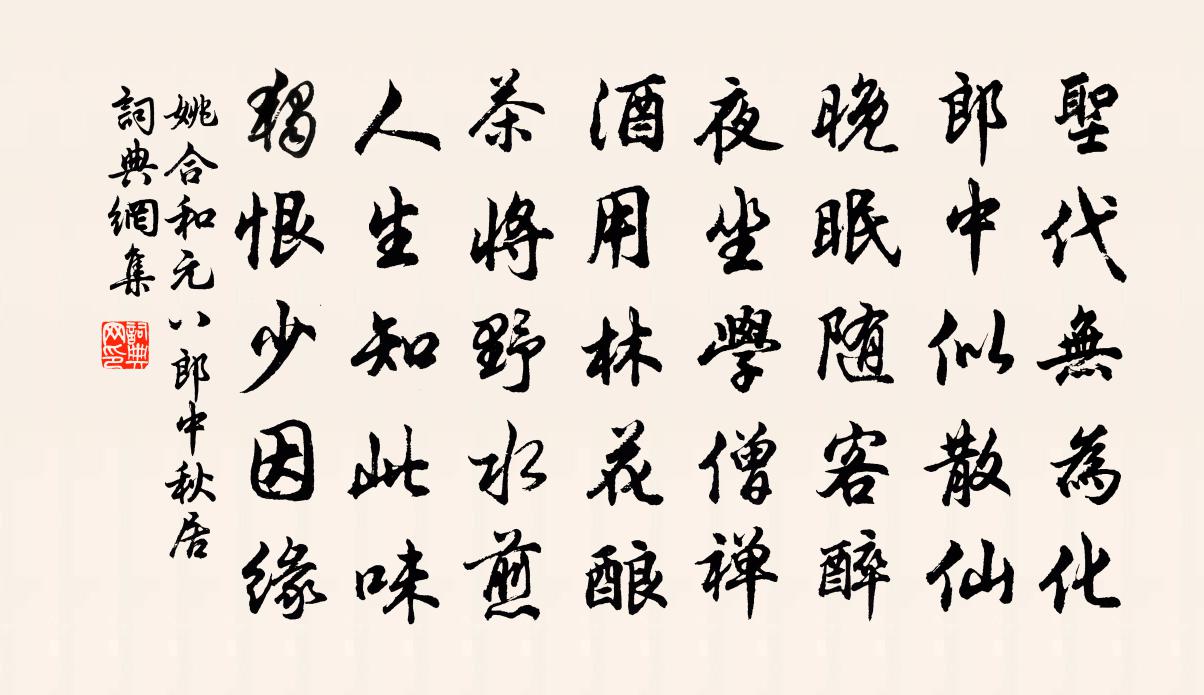 聖代無為化
郎中似散仙
晚眠随客醉
夜坐學僧禅
酒用林花酿
茶將野水煎
人生知此味
獨恨少因緣
姚合和元八郎中秋居
詞典網集
詞典网印